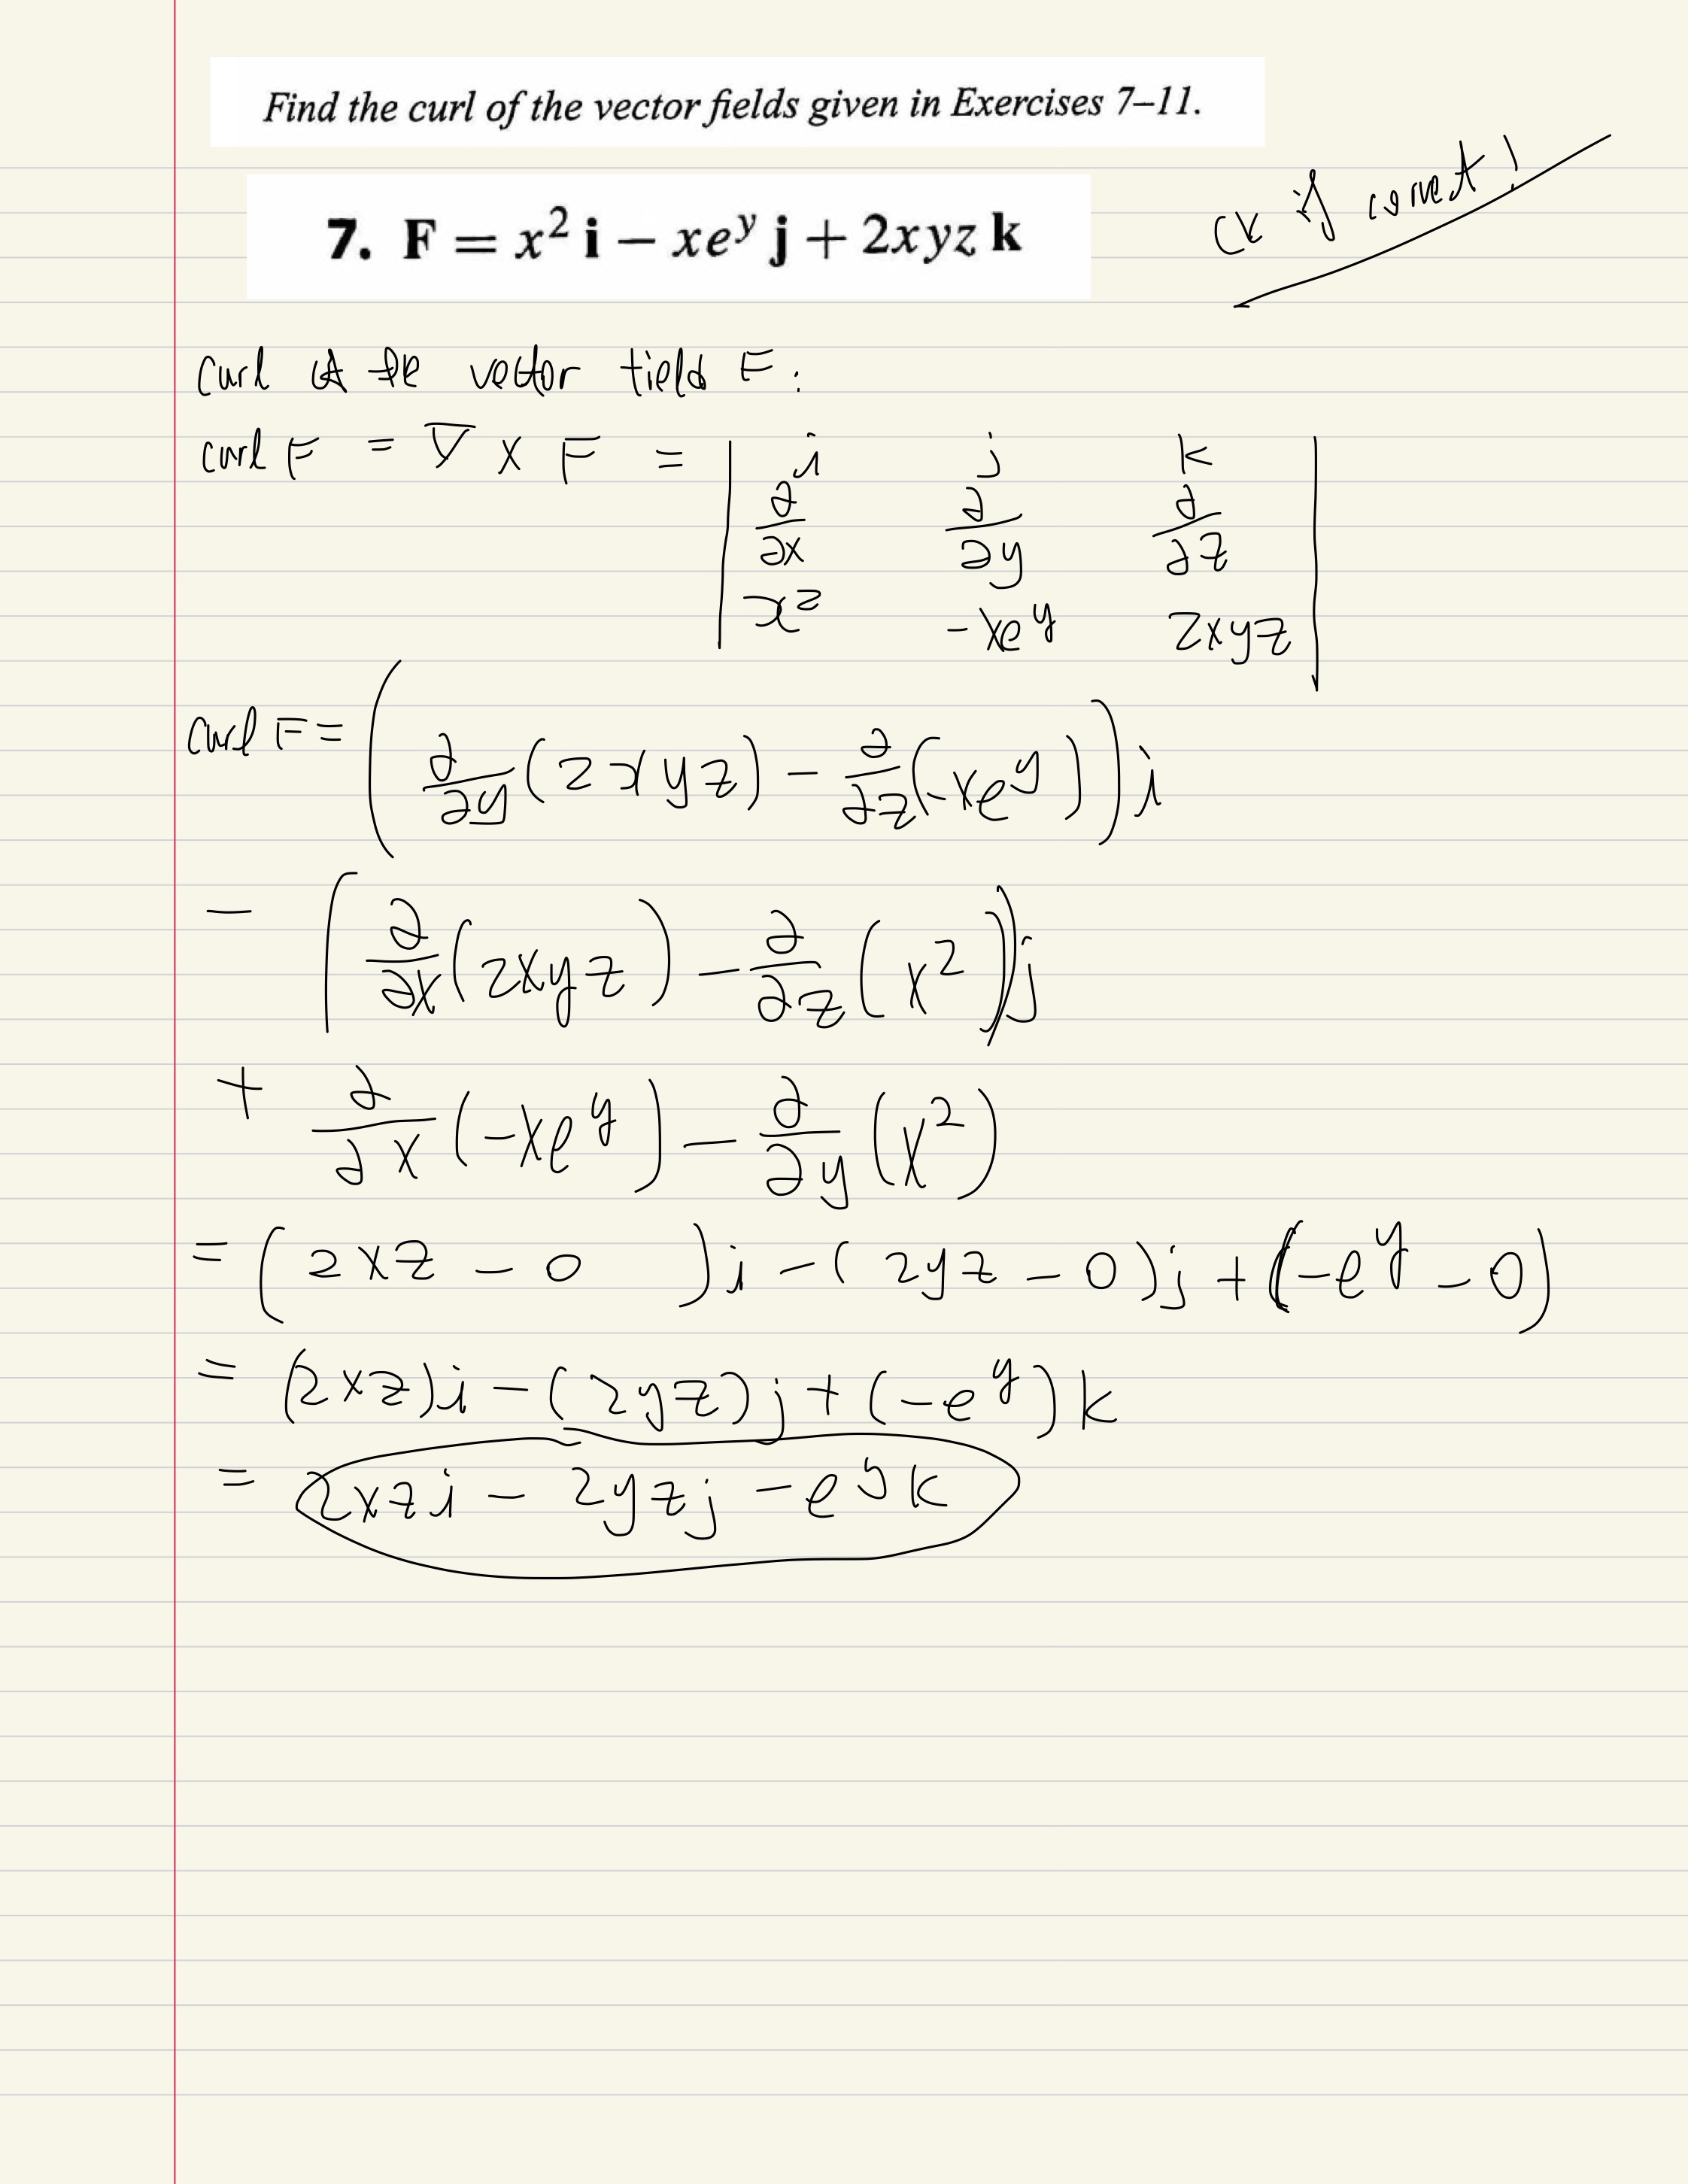 Find the curl of the vector fields given in Exercises 7–11.
ck if correct!
7. F = x² i − xeʸ j + 2xyz k
curl of the vector field F:
curl F = ∇ × F = | i j k |
∂/∂x ∂/∂y ∂/∂z
x² -xeʸ 2xyz
curl F = (∂/∂y (2xyz) − ∂/∂z (-xeʸ)) i
− (∂/∂x (2xyz) − ∂/∂z (x²)) j
+ ∂/∂x (-xeʸ) − ∂/∂y (x²)
= (2xz − 0) i − (2yz − 0) j + (-eʸ − 0)
= (2xz) i − (2yz) j + (-eʸ) k
= 2xz i − 2yz j − eʸ k